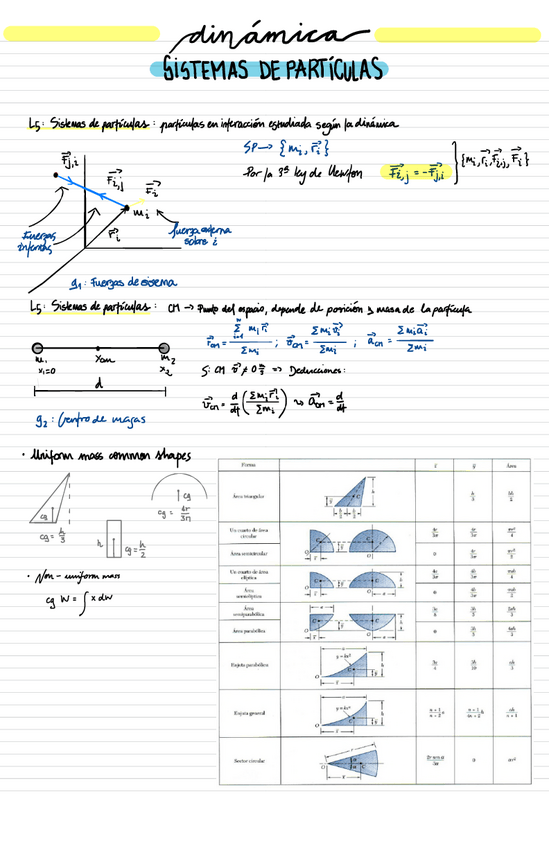 dinámica
SISTEMAS DE PARTÍCULAS
L5: Sistemas de partículas: partículas en interacción estudiada según la dinámica
SP → {mi, r⃗i}
Por la 3ª ley de Newton F⃗i,j = -F⃗j,i {mi, r⃗i, F⃗i,j, F⃗i}
F⃗j,i
F⃗i,j
F⃗i
mi
r⃗i
Fuerzas internas
fuerza externa sobre i
g1: Fuerzas de sistema
L5: Sistemas de partículas: CM → Punto del espacio, depende de posición y masa de la partícula
r⃗CM = Σ mi r⃗i / Σmi ; v⃗CM = Σmi v⃗i / Σmi ; a⃗CM = Σmi a⃗i / Σmi
m1 xCM m2
x1=0 x2
d
Si CM v⃗ ≠ 0 ⇒ Deducciones:
v⃗CM = d/dt (Σmi r⃗i / Σmi)
g2: Centro de masas
• Uniform mass common shapes
cg
cg = h/3
cg
cg = 4r/3π
h
cg = h/2
• Non-uniform mass
cg W = ∫ x dw
Forma x̄ ȳ Área
Área triangular h/3 bh/2
Un cuarto de área circular 4r/3π 4r/3π πr²/4
Área semicircular 0 4r/3π πr²/2
Un cuarto de área elíptica 4a/3π 4b/3π πab/4
Área semielíptica 0 4b/3π πab/2
Área semiparabólica 3a/8 3h/5 2ah/3
Área parabólica 0 3h/5 4ah/3
Enjuta parabólica y = kx² 3a/4 3h/10 ah/3
Enjuta general y = kxⁿ n+1/n+2 a n+1/4n+2 h ah/n+1
Sector circular 2r sen α/3α 0 αr²